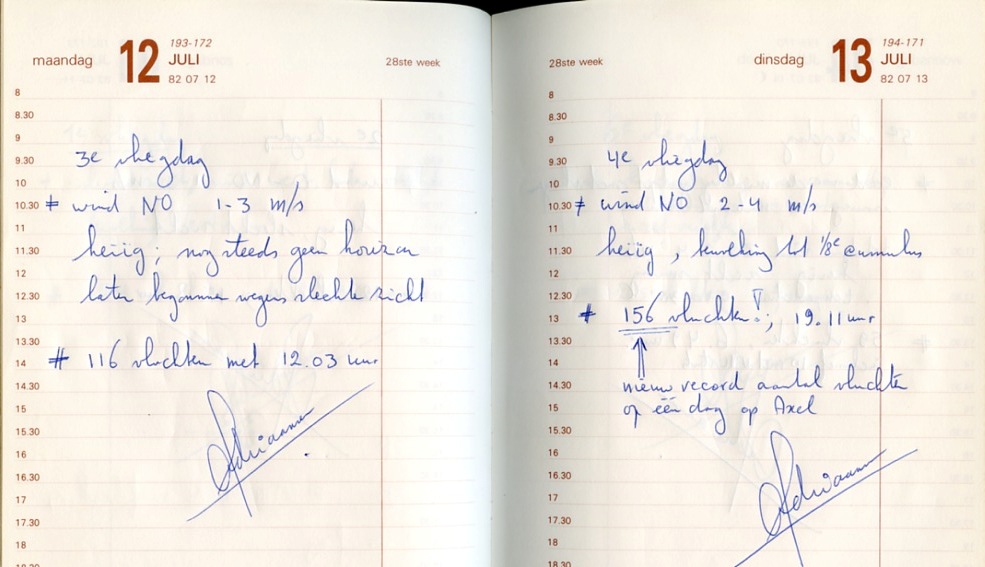 193-172
maandag 12 JULI
82 07 12
28ste week
8
8.30
9
9.30
10
10.30
11
11.30
12
12.30
13
13.30
14
14.30
15
15.30
16
16.30
17
17.30
18
18.30
3e vliegdag
# wind NO 1-3 m/s
heiig; nog steeds geen horizon
later begonnen wegens slechte zicht
# 116 vluchten met 12.03 uur
Adriaansen
194-171
28ste week
dinsdag 13 JULI
82 07 13
8
8.30
9
9.30
10
10.30
11
11.30
12
12.30
13
13.30
14
14.30
15
15.30
16
16.30
17
17.30
18
18.30
4e vliegdag
# wind NO 2-4 m/s
heiig, bewolking tot 1/8e cumulus
# 156 vluchten!; 19.11 uur
nieuw record aantal vluchten
op één dag op Axel
Adriaansen